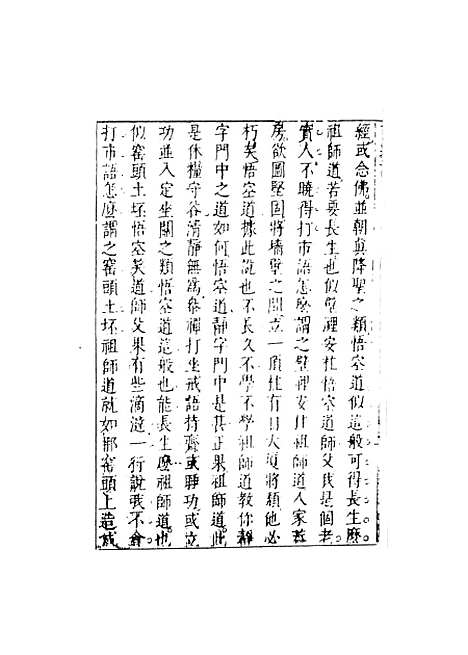 經或念佛並朝真降聖之類悟空道似這般可得長生麽
祖師道若要長生也似壁裡安柱悟空道師父我是個老
實人不曉得打市語怎麽謂之壁裡安柱祖師道人家蓋
房欲圖堅固將墻壁之間立一頂柱有日大廈將頹他必
朽矣悟空道據此說也不長久不學不學祖師道教你靜
字門中之道如何悟空道靜字門中是甚正果祖師道此
是休糧守谷清靜無為參禪打坐戒語持齋或睡功或立
功並入定坐關之類悟空道這般也能長生麽祖師道也
似窑頭土坯悟空笑道師父果有些滴澾一行說我不會
打市語怎麽謂之窑頭土坯祖師道就如那窑頭上造成